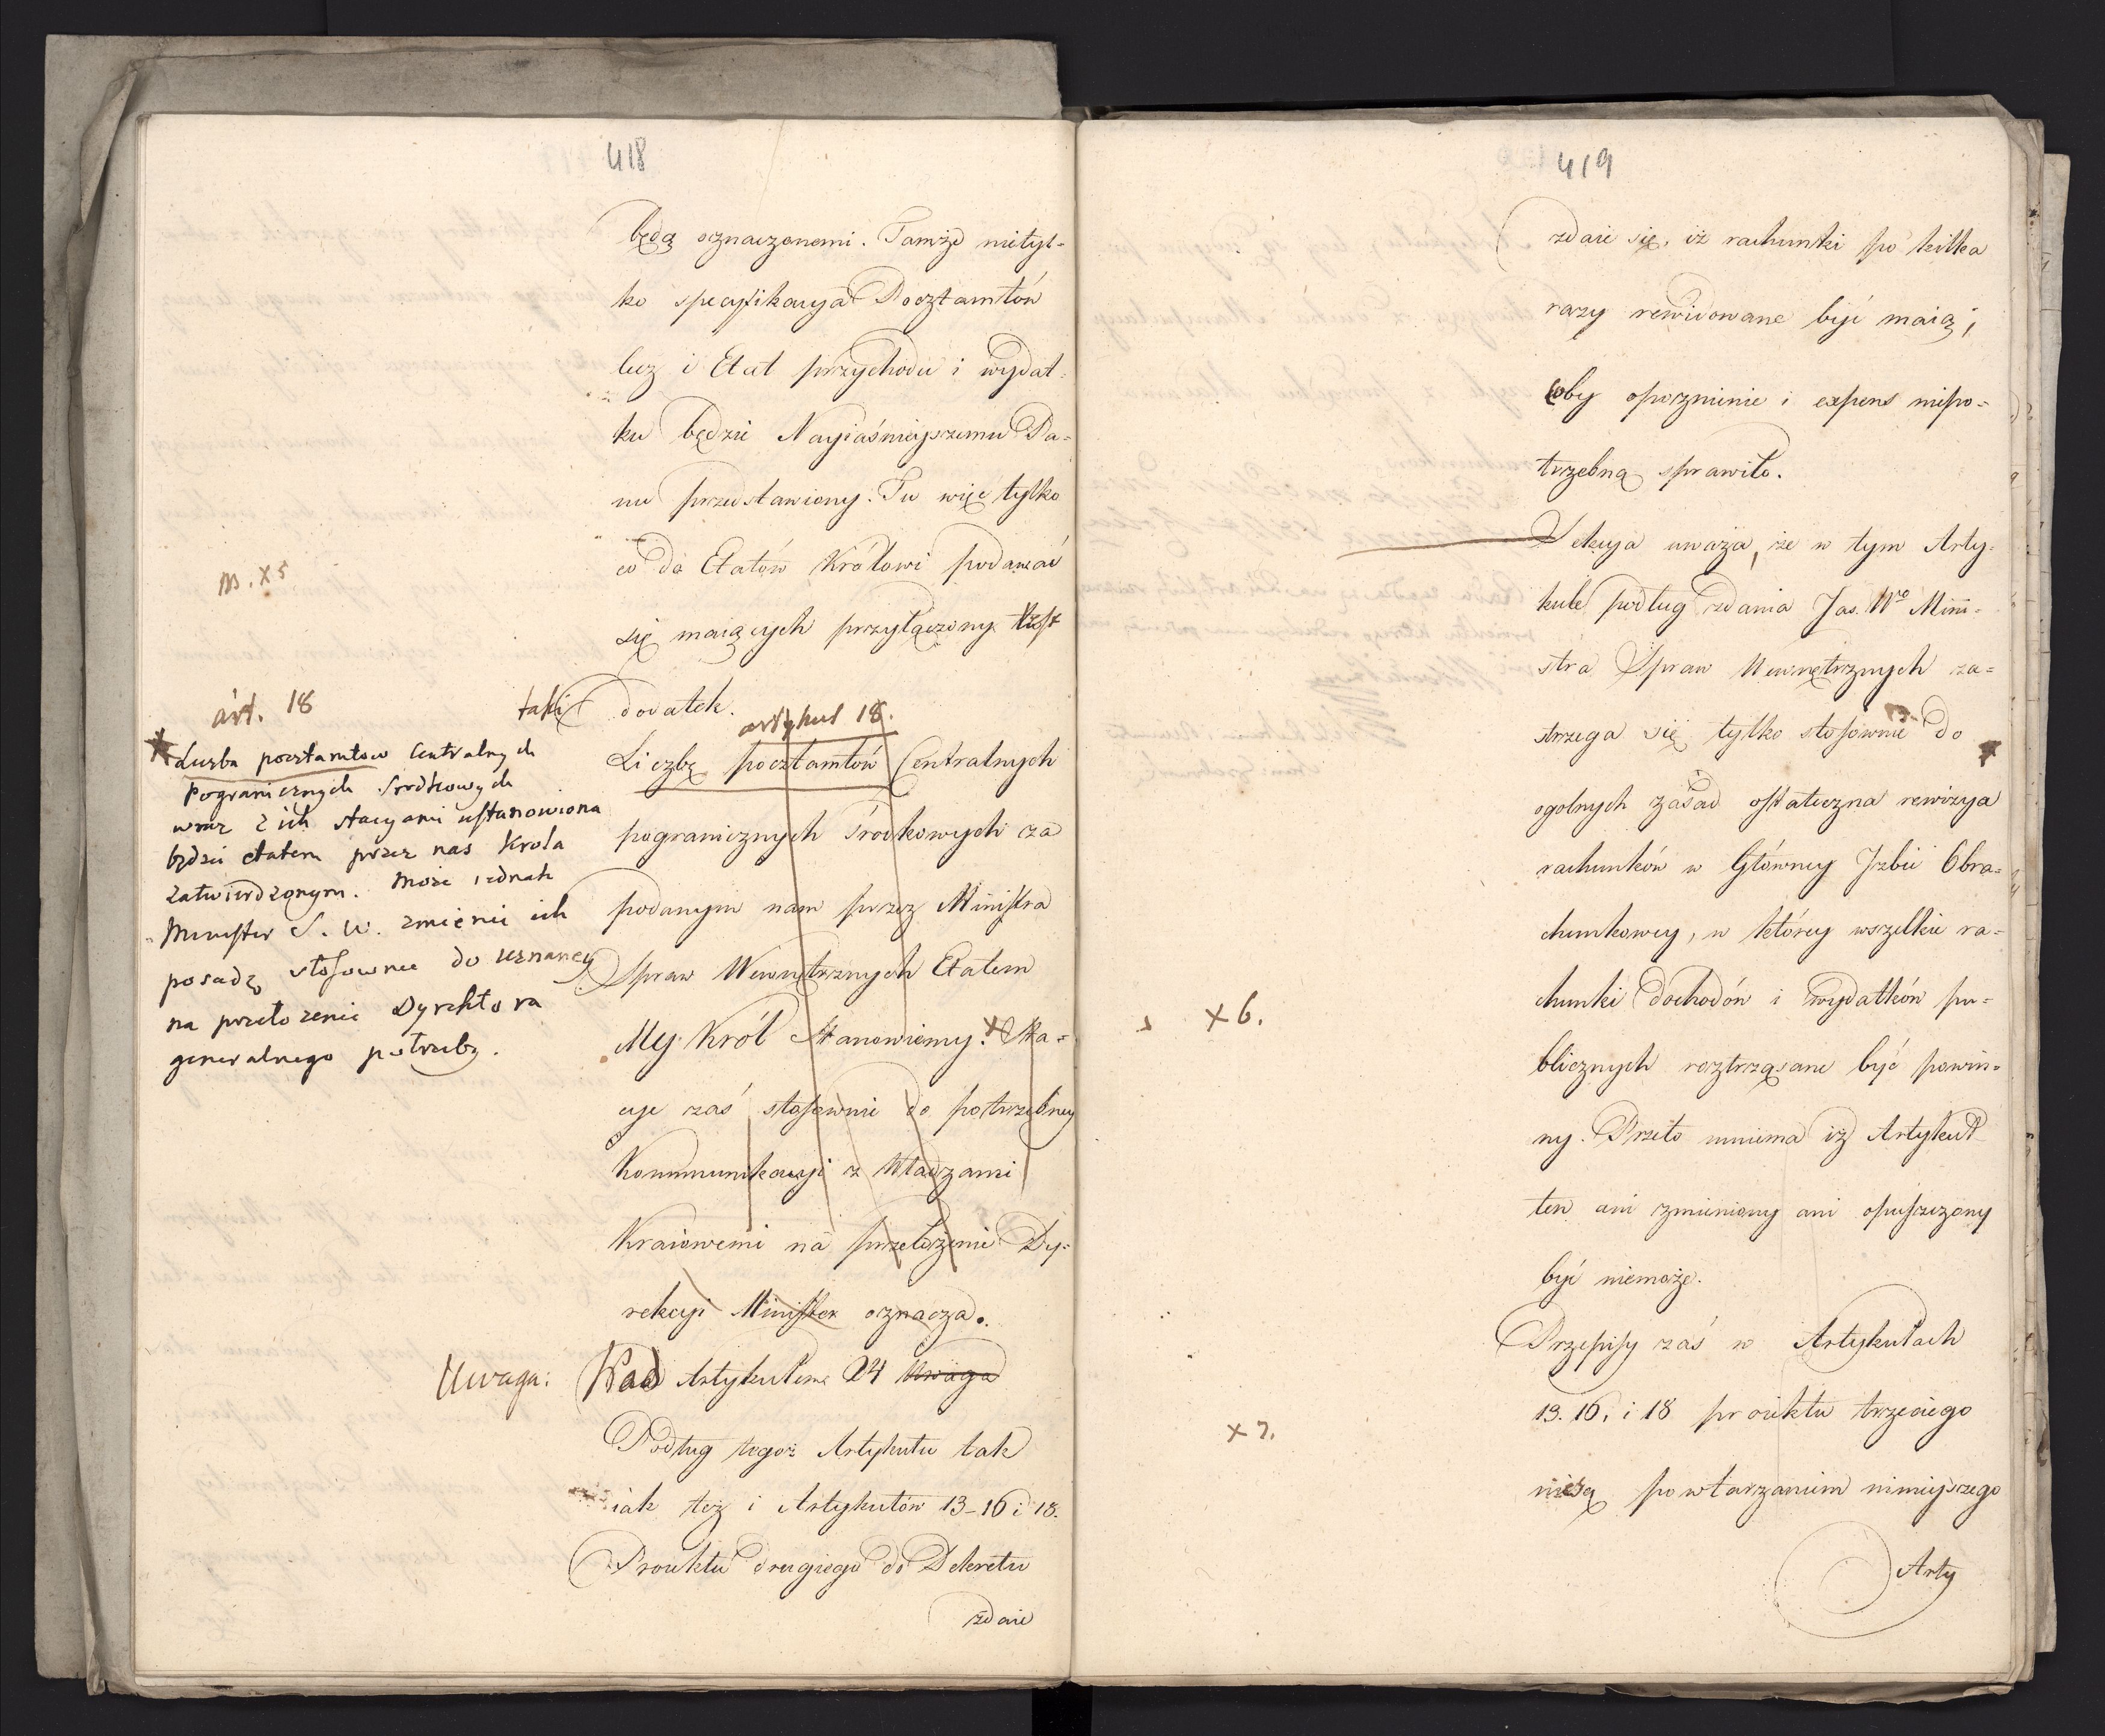 418
będą oznaczonemi. Tamże nietyl-
ko specyfikacya Pocztamtów
lecz i Etat przychodu i wydat-
ku będzie Nayiaśnieyszemu Pa-
nu przedstawiony. Tu więc tylko
co do Etatów Królowi podawać
się maiących przyłączony
taki dodatek.
artykuł 18.
Liczbę pocztamtów Centralnych
pogranicznych środkowych za
podanym nam przez Ministra
Spraw Wewnętrznych Etatem
My Król stanowiemy. x Sta-
cye zaś stosownie do potrzebney
Kommunikacyi z Władzami
Kraiowemi na przełożenie Dy-
rekcyi Minister oznacza.
Uwaga: Nad Artykułem 24 Uwaga
Podług tegoż Artykułu tak
iak też i Artykułów 13-16 i 18.
Proiektu drugiego do Dekretu
zdaie
x 5
art. 18
Liczba pocztamtow Centralnych
Pogranicznych Srodkowych
wraz z ich stacyami ustanowiona
będzie etatem przez nas Krola
zatwierdzonym. Może iednak
Minister S. W. zmienić ich
posadę stosownie do uznaney
na przełożenie Dyrektora
generalnego potrzeby.
419
zdaie się, iż rachunki po kilka
razy rewidowane być maią;
coby opoznienie i expens niepo-
trzebną sprawiło.
Sekcya uważa, że w tym Arty-
kule podług zdania Jas. Wgo Mini-
stra Spraw Wewnętrznych za-
strzega się tylko stosownie do
ogolnych zasad ostateczna rewizya
rachunków w Główney Izbie Obra-
chunkowey, w którey wszelkie ra-
chunki dochodów i wydatków pu-
blicznych roztrząsane być powin-
ny. Przeto mniema iż Artykuł
ten ani zmieniony ani opuszczony
być niemoże.
Przepisy zaś w Artykułach
13. 16. i 18 proiektu trzeciego
niesą powtarzaniem ninieyszego
Arty
x 6.
x 7.